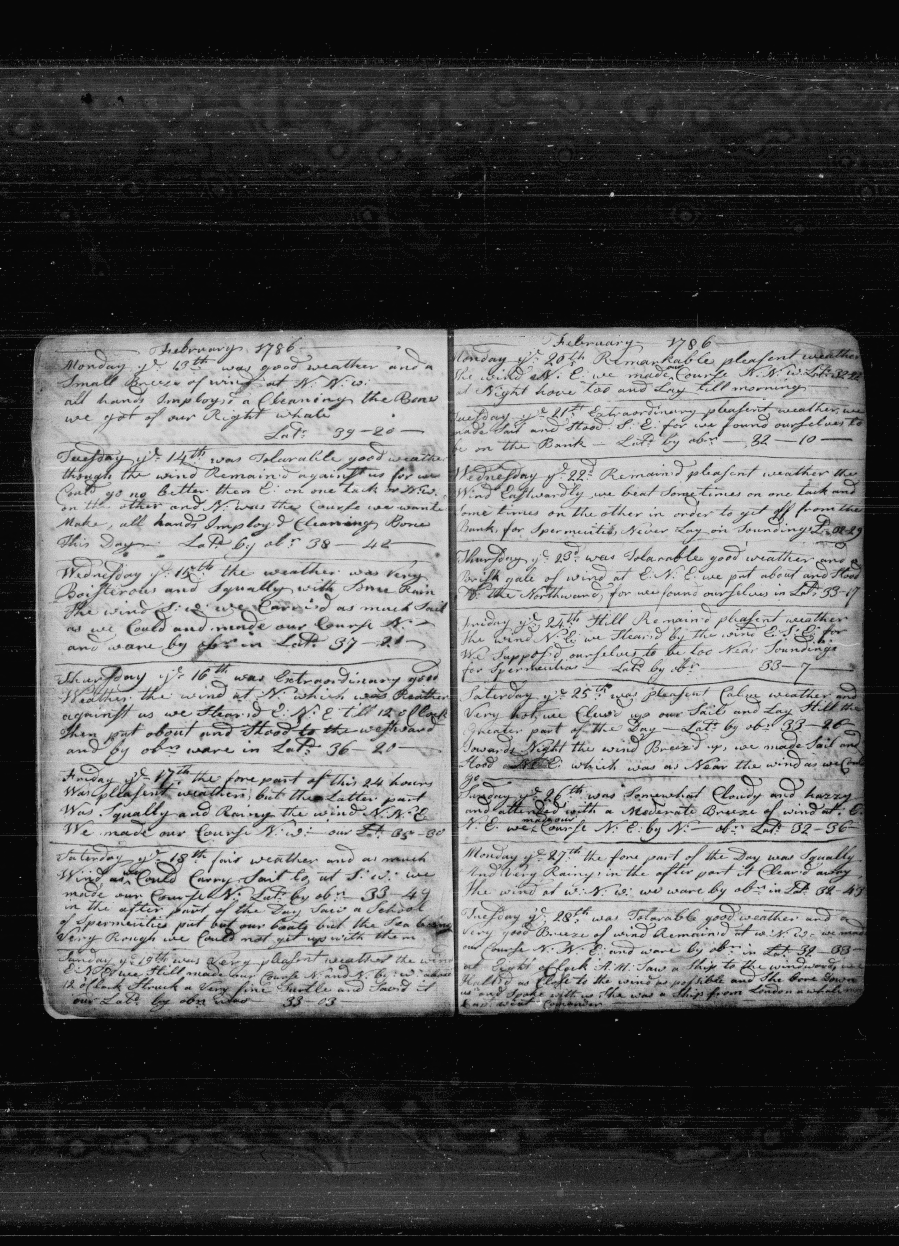 February 1786
Monday ye 13th was good weather and a
Small Breeze of wind at N. N. w.
all hands Imploy'd a Cleaning the Bone
we got of our Right whale
Latt: 39-20
Tuesday ye 14th was Tolarable good weather
though the wind Remain'd against us for we
Could go no better then E: on one tack or W.
on the other and N. was the Course we want
Make, all hands Imploy'd Cleaning Bone
This Day Latt by obn 38 - 42
Wednesday ye 15th the weather was Very
Boisterous and Squally with Some Rain
The wind S: w: we Carried as much Sail
as we Could and made our Course N.
and ware by obn in Latt: 37-21
Thursday ye 16th was Extraordinary good
Weather the wind at N. which was Reather
against us we Stear'd E. N. E till 12 o Clock
then put about and Stood to the westward
and by obn ware in Latt: 36-20
Friday ye 17th the fore part of this 24 hours
Was pleasent weather, but the Latter part
Was Squally and Rainy the wind N. N. E
We made our Course N. w: our Lt: 35-30
Saturday ye 18th fair weather and as much
Wind as Could Carry Sail to, at S: w: we
made our Course N. Latt: by obn 33-49
in the after part of the Day Saw a School
of Spermecities put out our boats but the Sea being
Very Rough we Could not get up with them
Sunday ye 19th was very pleasent weather the wind
E. we Still made our Course N. and N. by w. about
12 o Clock Struck a Very fine Turtle and Saved it
our Latt: by obn was 33-03
February 1786
Monday ye 20th Remarkable pleasent weather
The wind N. E. we made our Course N. N. w: Latt: 32-22
at Night hove too and Lay till morning
Tuesday ye 21st Extraordinary pleasent weather, we
made Sail and Stood S. E. for we found ourselves to
be on the Bank Latt by obn - 32-10
Wednesday ye 22d Remain'd pleasent weather the
Wind Eastwardly we beat Sometimes on one tack and
Some times on the other in order to get off from the
Bank, for Spermecities Never Lay on Soundings
Thursday ye 23d was Tolarable good weather and
Brisk gale of wind at E. N. E. we put about and Stood
to the Northward, for we found ourselves in Latt: 33-17
Friday ye 24th Still Remain'd pleasent weather
the wind N. E. we Stear'd by the wind E. S. E. for
We Suppos'd ourselves to be too Near Soundings
for Spermecities Latt by obn 33-7
Saturday ye 25th was pleasent Calm weather and
Very hot, we Clew'd up our Sails and Lay Still the
Greater part of the Day - Latt: by obn 33-20
Towards Night the wind Breez'd up, we made Sail and
Stood E. which was as Near the wind as we Could
go
Sunday ye 26th was Somewhat Cloudy and hazzy
and attended with a Moderate Breeze of wind at E.
made our
N. E. we Course N. E. by N. - obn Latt: 32-36
Monday ye 27th the fore part of the Day was Squally
And Very Rainy, in the after part it Clear'd away
The wind at w: N. w: we ware by obn in Lat
Tuesday ye 28th was Tolarable good weather and a
Very good Breeze of wind Remain'd at w. N. w: we made
our Course N. N. E. and ware by obn in Latt
at Eight o Clock A.M. Saw a Ship to the windward we
Halled as Close to the wind as possible and She bore Down
to us and Spoke with us. She was a Ship from London a whaleman
Comander